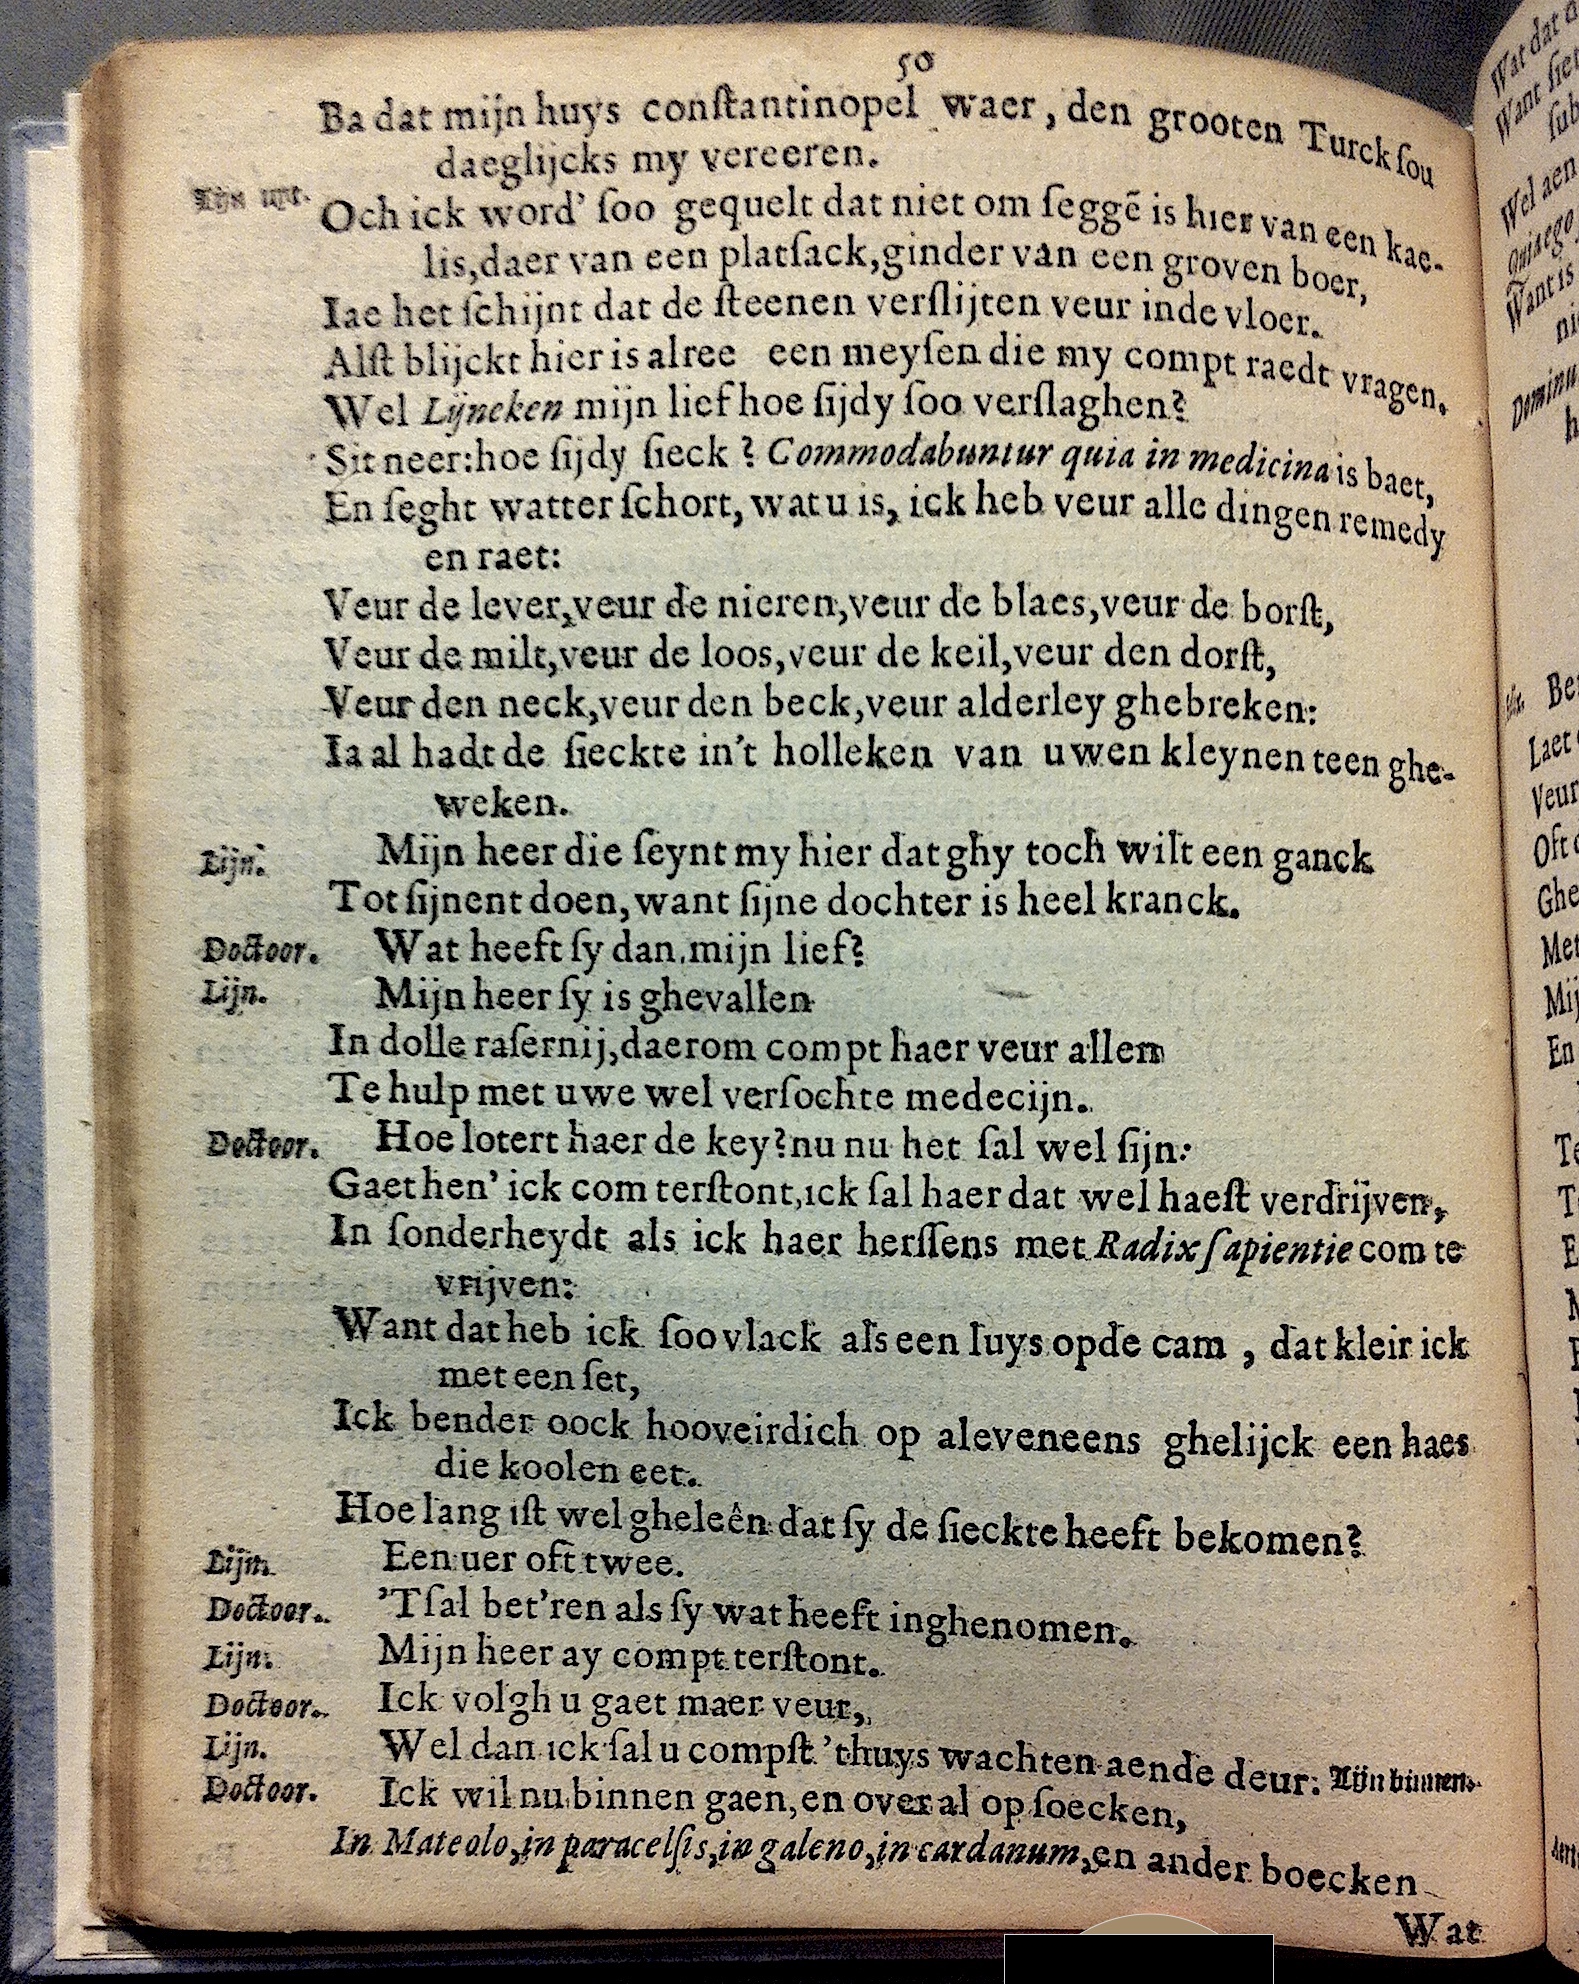 50
Ba dat mijn huys conſtantinopel waer, den grooten Turck ſou
daeglijcks my vereeren.
Lijn uyt. Och ick word' ſoo gequelt dat niet om ſeggē is hier van een kae-
lis, daer van een platſack, ginder van een groven boer,
Iae het ſchijnt dat de ſteenen verſlijten veur inde vloer.
Alſt blijckt hier is alree een meyſen die my compt raedt vragen.
Wel Lijneken mijn lief hoe ſijdy ſoo verſlaghen?
Sit neer: hoe ſijdy ſieck? Commodabuntur quia in medicina is baet,
En ſeght watter ſchort, wat u is, ick heb veur alle dingen remedy
en raet:
Veur de lever, veur de nieren, veur de blaes, veur de borſt,
Veur de milt, veur de loos, veur de keil, veur den dorſt,
Veur den neck, veur den beck, veur alderley ghebreken:
Ia al hadt de ſieckte in't holleken van uwen kleynen teen ghe-
weken.
Lijn. Mijn heer die ſeynt my hier dat ghy toch wilt een ganck
Tot ſijnent doen, want ſijne dochter is heel kranck.
Doctoor. Wat heeft ſy dan, mijn lief?
Lijn. Mijn heer ſy is ghevallen
In dolle raſernij, daerom compt haer veur allen
Te hulp met uwe wel verſochte medecijn.
Doctoor. Hoe lotert haer de key? nu nu het ſal wel ſijn:
Gaet hen' ick com terſtont, ick ſal haer dat wel haeſt verdrijven,
In ſonderheydt als ick haer herſſens met Radix ſapientie com te
vrijven:
Want dat heb ick ſoo vlack als een luys op de cam, dat kleir ick
met een ſet,
Ick bender oock hooveirdich op aleveneens ghelijck een haes
die koolen eet.
Hoe lang iſt wel gheleên dat ſy de ſieckte heeft bekomen?
Lijn. Een uer oft twee.
Doctoor. 'Tſal bet'ren als ſy wat heeft inghenomen.
Lijn. Mijn heer ay compt terſtont.
Doctoor. Ick volgh u gaet maer veur,
Lijn. Wel dan ick ſal u compſt 'thuys wachten aende deur. Lijn binnen.
Doctoor. Ick wil nu binnen gaen, en over al op ſoecken,
In Mateolo, in paracelſis, in galeno, in cardanum, en ander boecken
Wat